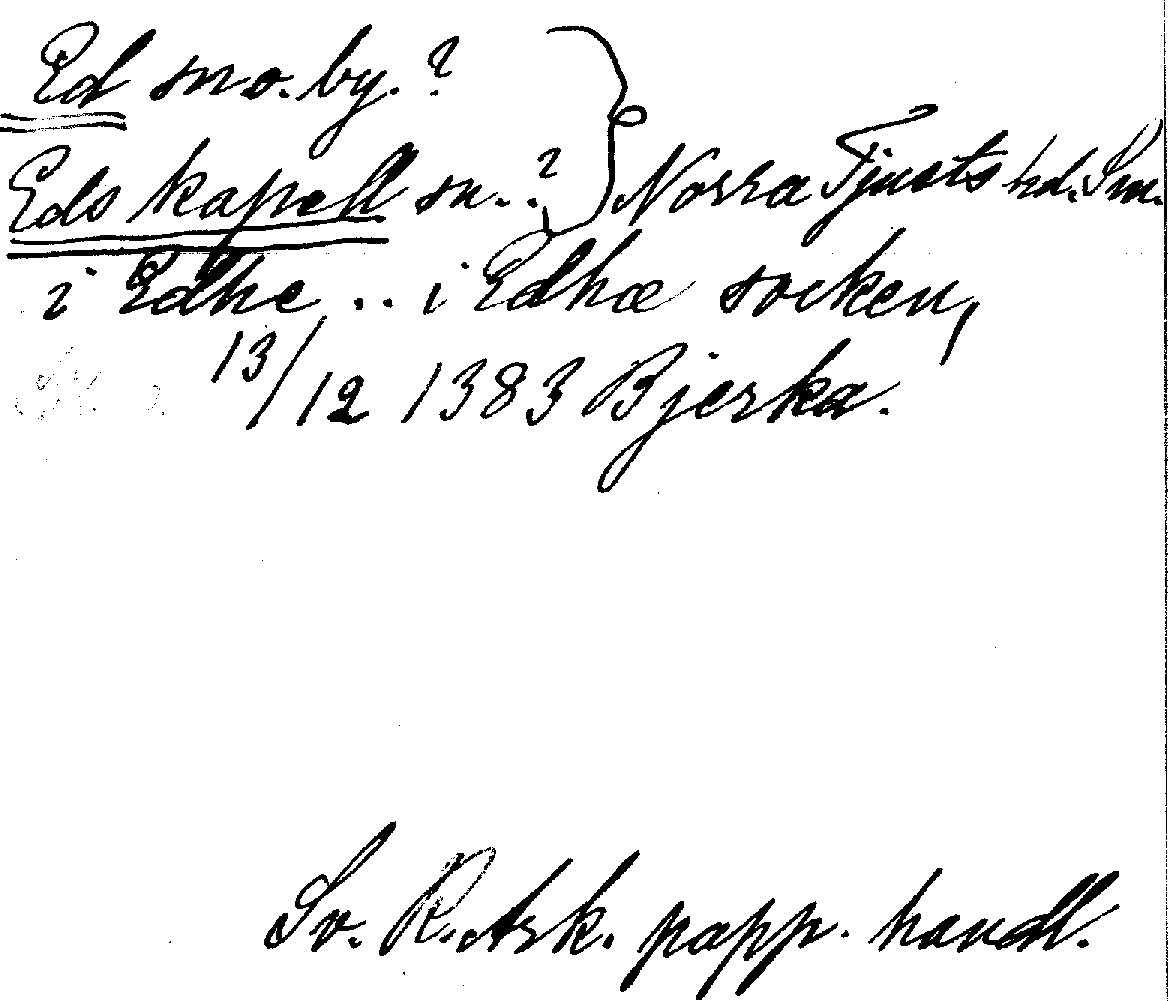 Ed sn o. by. ?
Eds kapell sn. ? } Norra Tjusts hd. Sm.
i Edhe .. i Edhæ socken,
13/12 1383 Bjerka.
Sv. R. Ark. papp. handl.